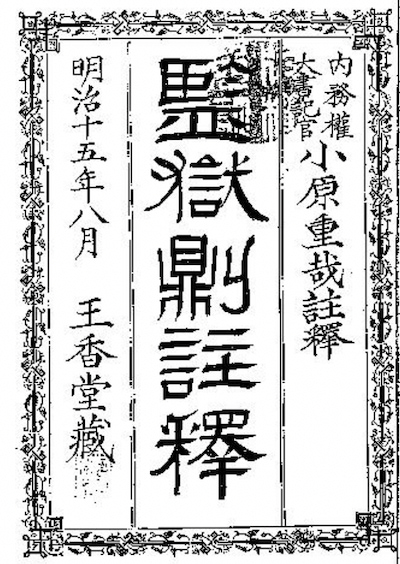 内務權大書記官 小原重哉註釋
監獄則註釋
明治十五年八月 王香堂藏